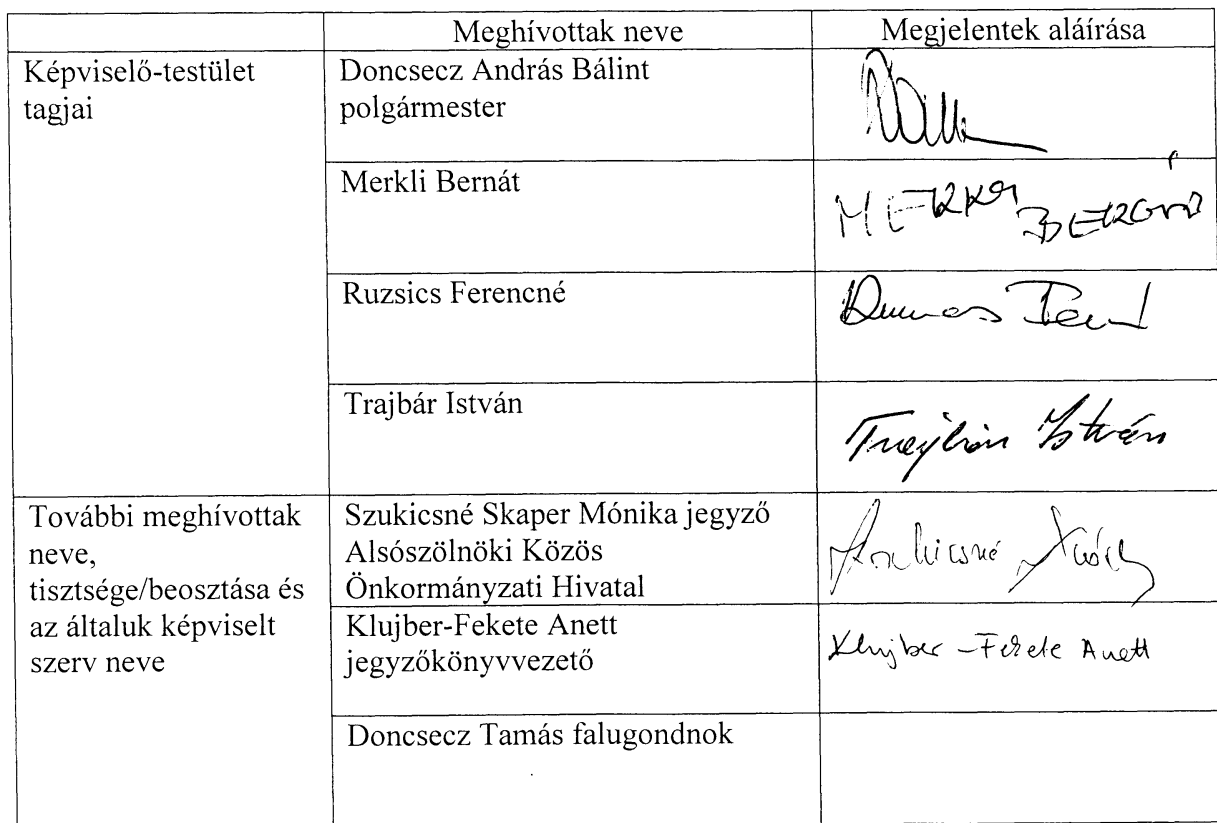 Meghívottak neve
Megjelentek aláírása
Képviselő-testület
tagjai
Doncsecz András Bálint
polgármester
Merkli Bernát
MERKLI
Ruzsics Ferencné
Trajbár István
Trajbár István
További meghívottak
neve,
tisztsége/beosztása és
az általuk képviselt
szerv neve
Szukicsné Skaper Mónika jegyző
Alsószölnöki Közös
Önkormányzati Hivatal
Szukicsné
Klujber-Fekete Anett
jegyzőkönyvvezető
Klujber-Fekete Anett
Doncsecz Tamás falugondnok